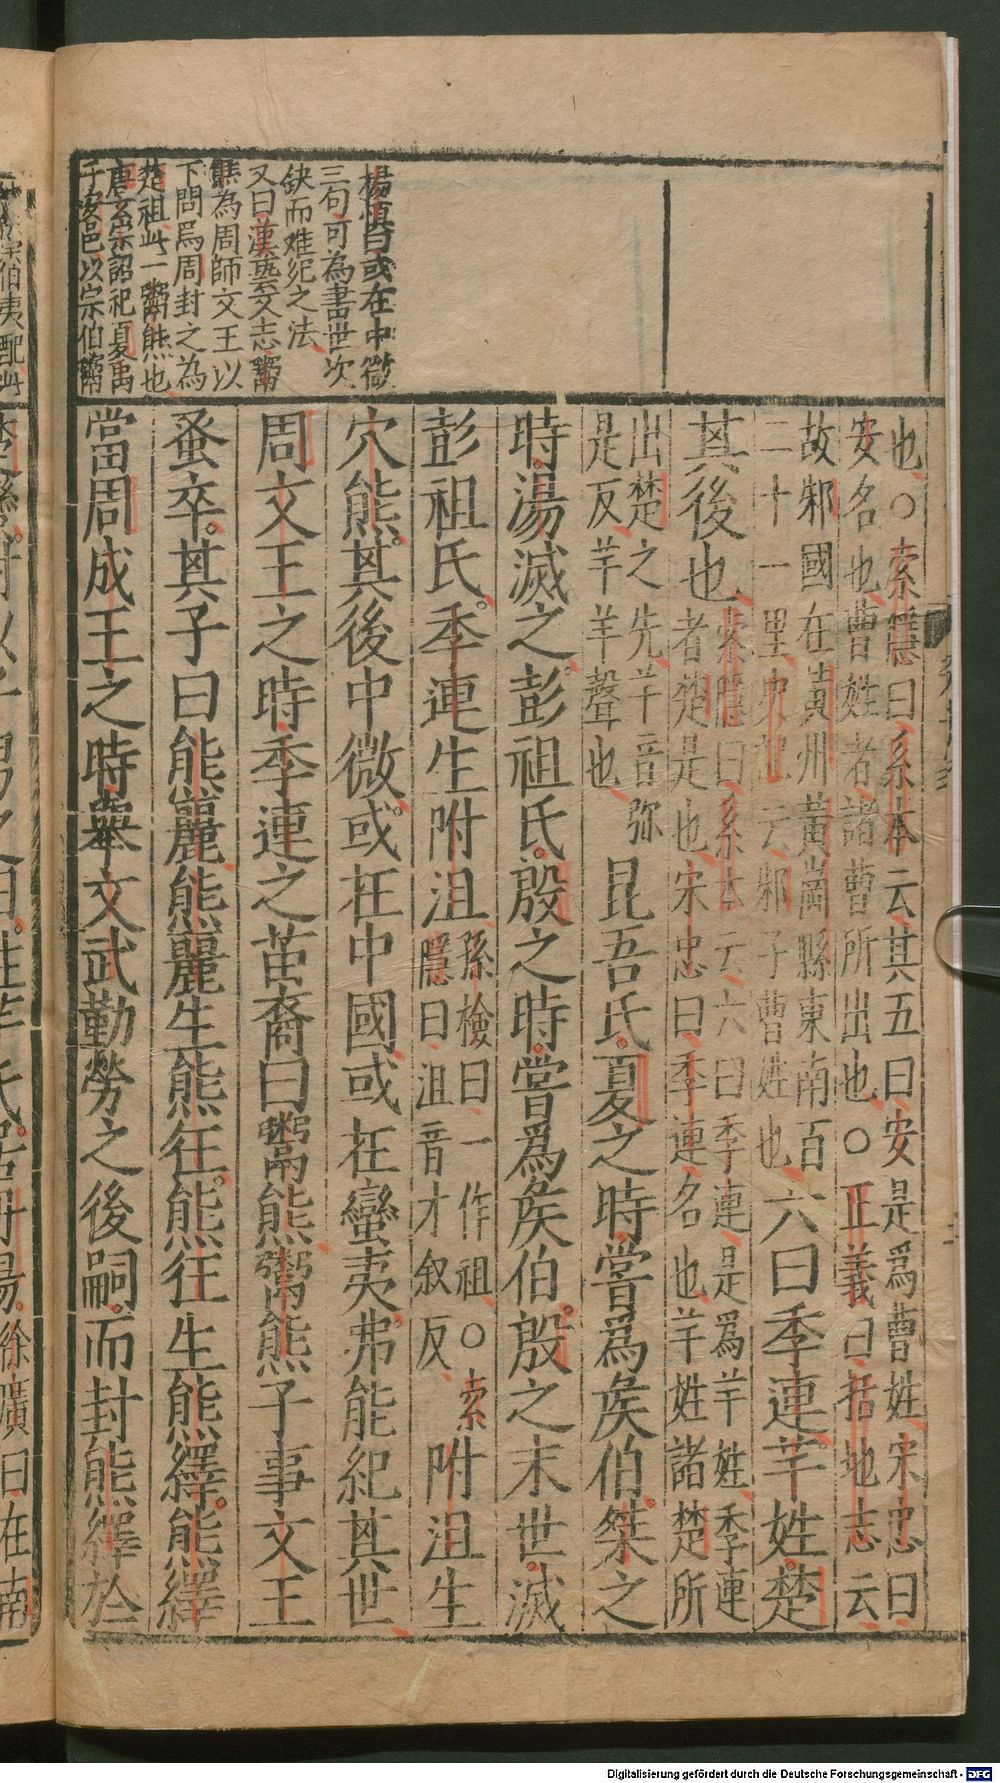 楊愼曰或在中微
三句可為書世次
缺而难紀之法
又曰漢藝文志鬻
熊為周師文王以
下問焉周封之為
楚祖此一鬻熊也
唐玄宗詔祀夏禹
于安邑以宗伯鬻
也○索隱曰系本云其五曰安是爲曹姓宋忠曰
安名也曹姓者諸曹所出也○正義曰括地志云
故邾國在黃州黃岡縣東南百
二十一里史記云邾子曹姓也
六曰季連芈姓楚
其後也
索隱曰系本云六曰季連是爲芈姓季連
者楚是也宋忠曰季連名也芈姓諸楚所
出楚之先芈音弥
是反芈羊聲也
昆吾氏夏之時嘗爲矦伯桀之
時湯滅之彭祖氏殷之時嘗爲矦伯殷之末世滅
彭祖氏季連生附沮
孫檢曰一作祖○索
隱曰沮音才叙反
附沮生
穴熊其後中微或在中國或在蠻夷弗能紀其世
周文王之時季連之苗裔曰鬻熊鬻熊子事文王
蚤卒其子曰熊麗熊麗生熊狂熊狂生熊繹熊繹
當周成王之時舉文武勤勞之後嗣而封熊繹於
Digitalisierung gefördert durch die Deutsche Forschungsgemeinschaft - DFG